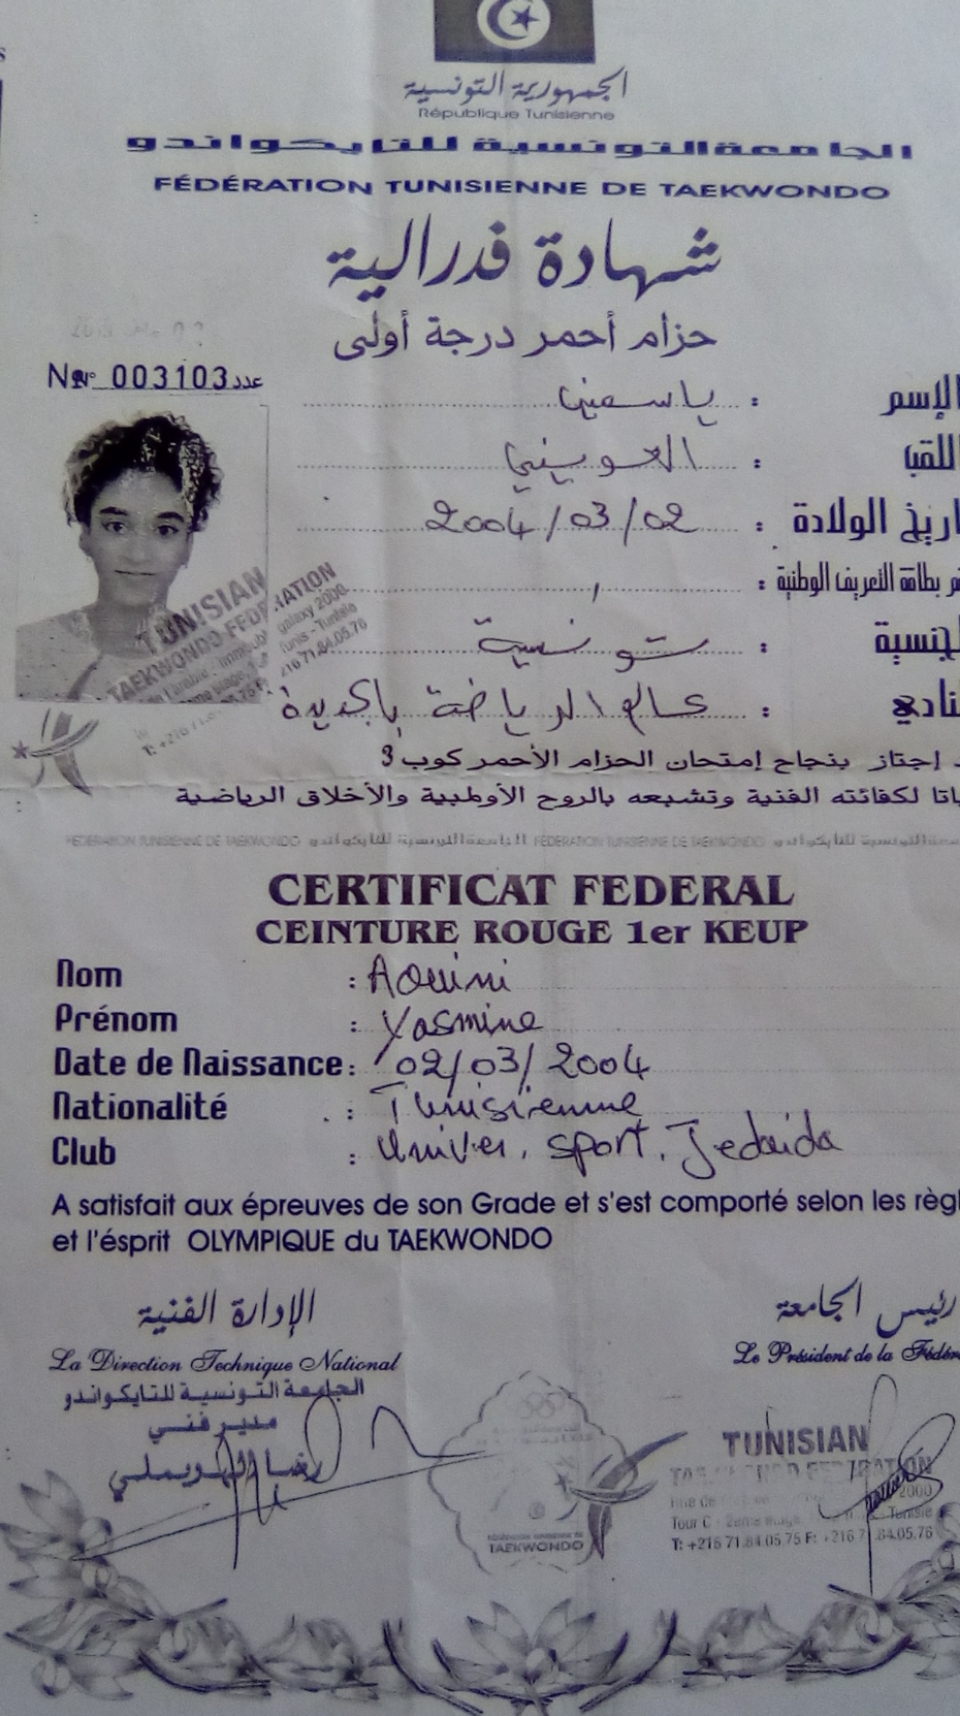 الجمهورية التونسية
République Tunisienne
الجامعة التونسية للتايكواندو
FÉDÉRATION TUNISIENNE DE TAEKWONDO
شهادة فدرالية
حزام أحمر درجة أولى
N° 003103 عدد
الإسم : ياسمين
اللقب : العويني
اريخ الولادة : 2004/03/02
م بطاقة التعريف الوطنية :
لجنسية : تونسية
لنادي : عالم الرياضة بالجديدة
TUNISIAN
TAEKWONDO FEDERATION
إجتاز بنجاح إمتحان الحزام الأحمر كوب 3
باتا لكفائته الفنية وتشبعه بالروح الأولمبية والأخلاق الرياضية
FEDERATION TUNISIENNE DE TAEKWONDO الجامعة التونسية للتايكواندو FEDERATION TUNISIENNE DE TAEKWONDO
CERTIFICAT FEDERAL
CEINTURE ROUGE 1er KEUP
Nom : Aouini
Prénom : Yasmine
Date de Naissance : 02/03/2004
Nationalité : Tunisienne
Club : Univer. sport. Jedaida
A satisfait aux épreuves de son Grade et s'est comporté selon les règl
et l'ésprit OLYMPIQUE du TAEKWONDO
الإدارة الفنية رئيس الجامعة
La Direction Technique National Le Président de la Fédér
الجامعة التونسية للتايكواندو
مدير فني
TUNISIAN
TAEKWONDO FEDERATION
Tour C
T: +216 71.84.05.75 F: +216 71.84.05.76
FÉDÉRATION TUNISIENNE DE
TAEKWONDO